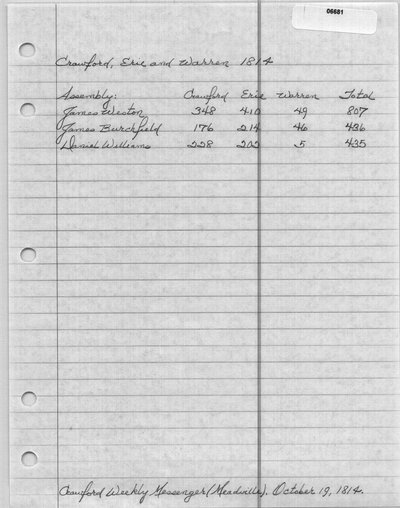 06681
Crawford, Erie and Warren 1814
Assembly: Crawford Erie Warren Total
James Weston 348 410 49 807
James Burchfield 176 214 46 436
Daniel Williams 228 202 5 435
Crawford Weekly Messenger (Meadville). October 19, 1814.